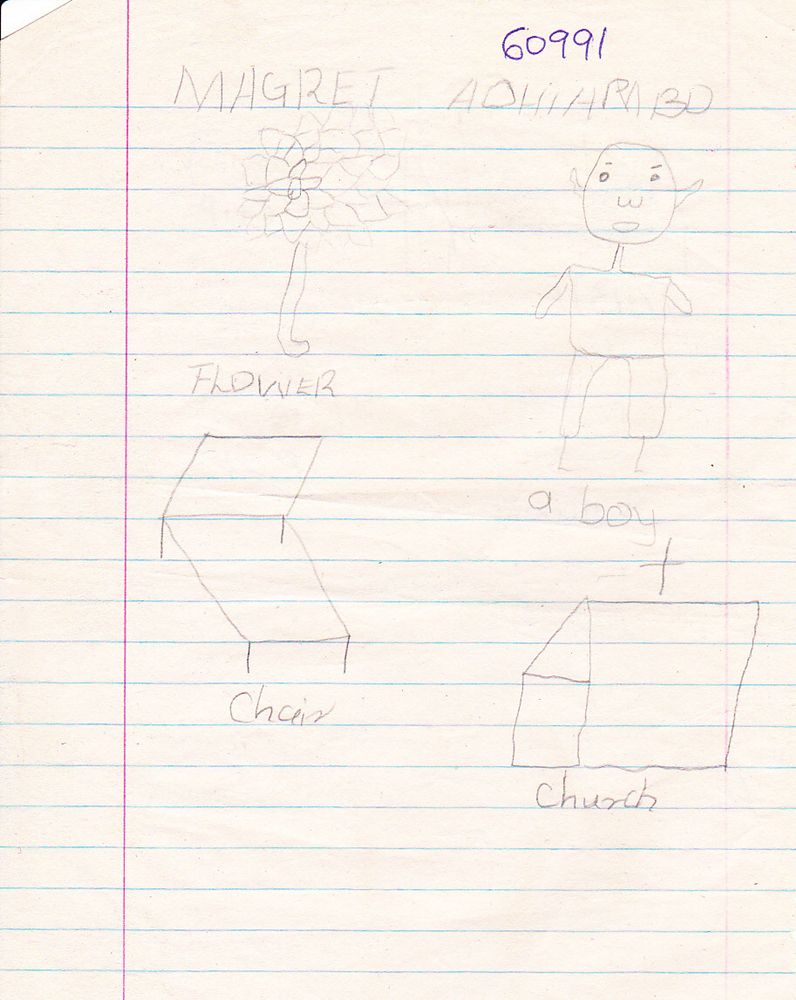 60991
MAGRET ADHIARABO
FLOWER
a boy
Chair
Church